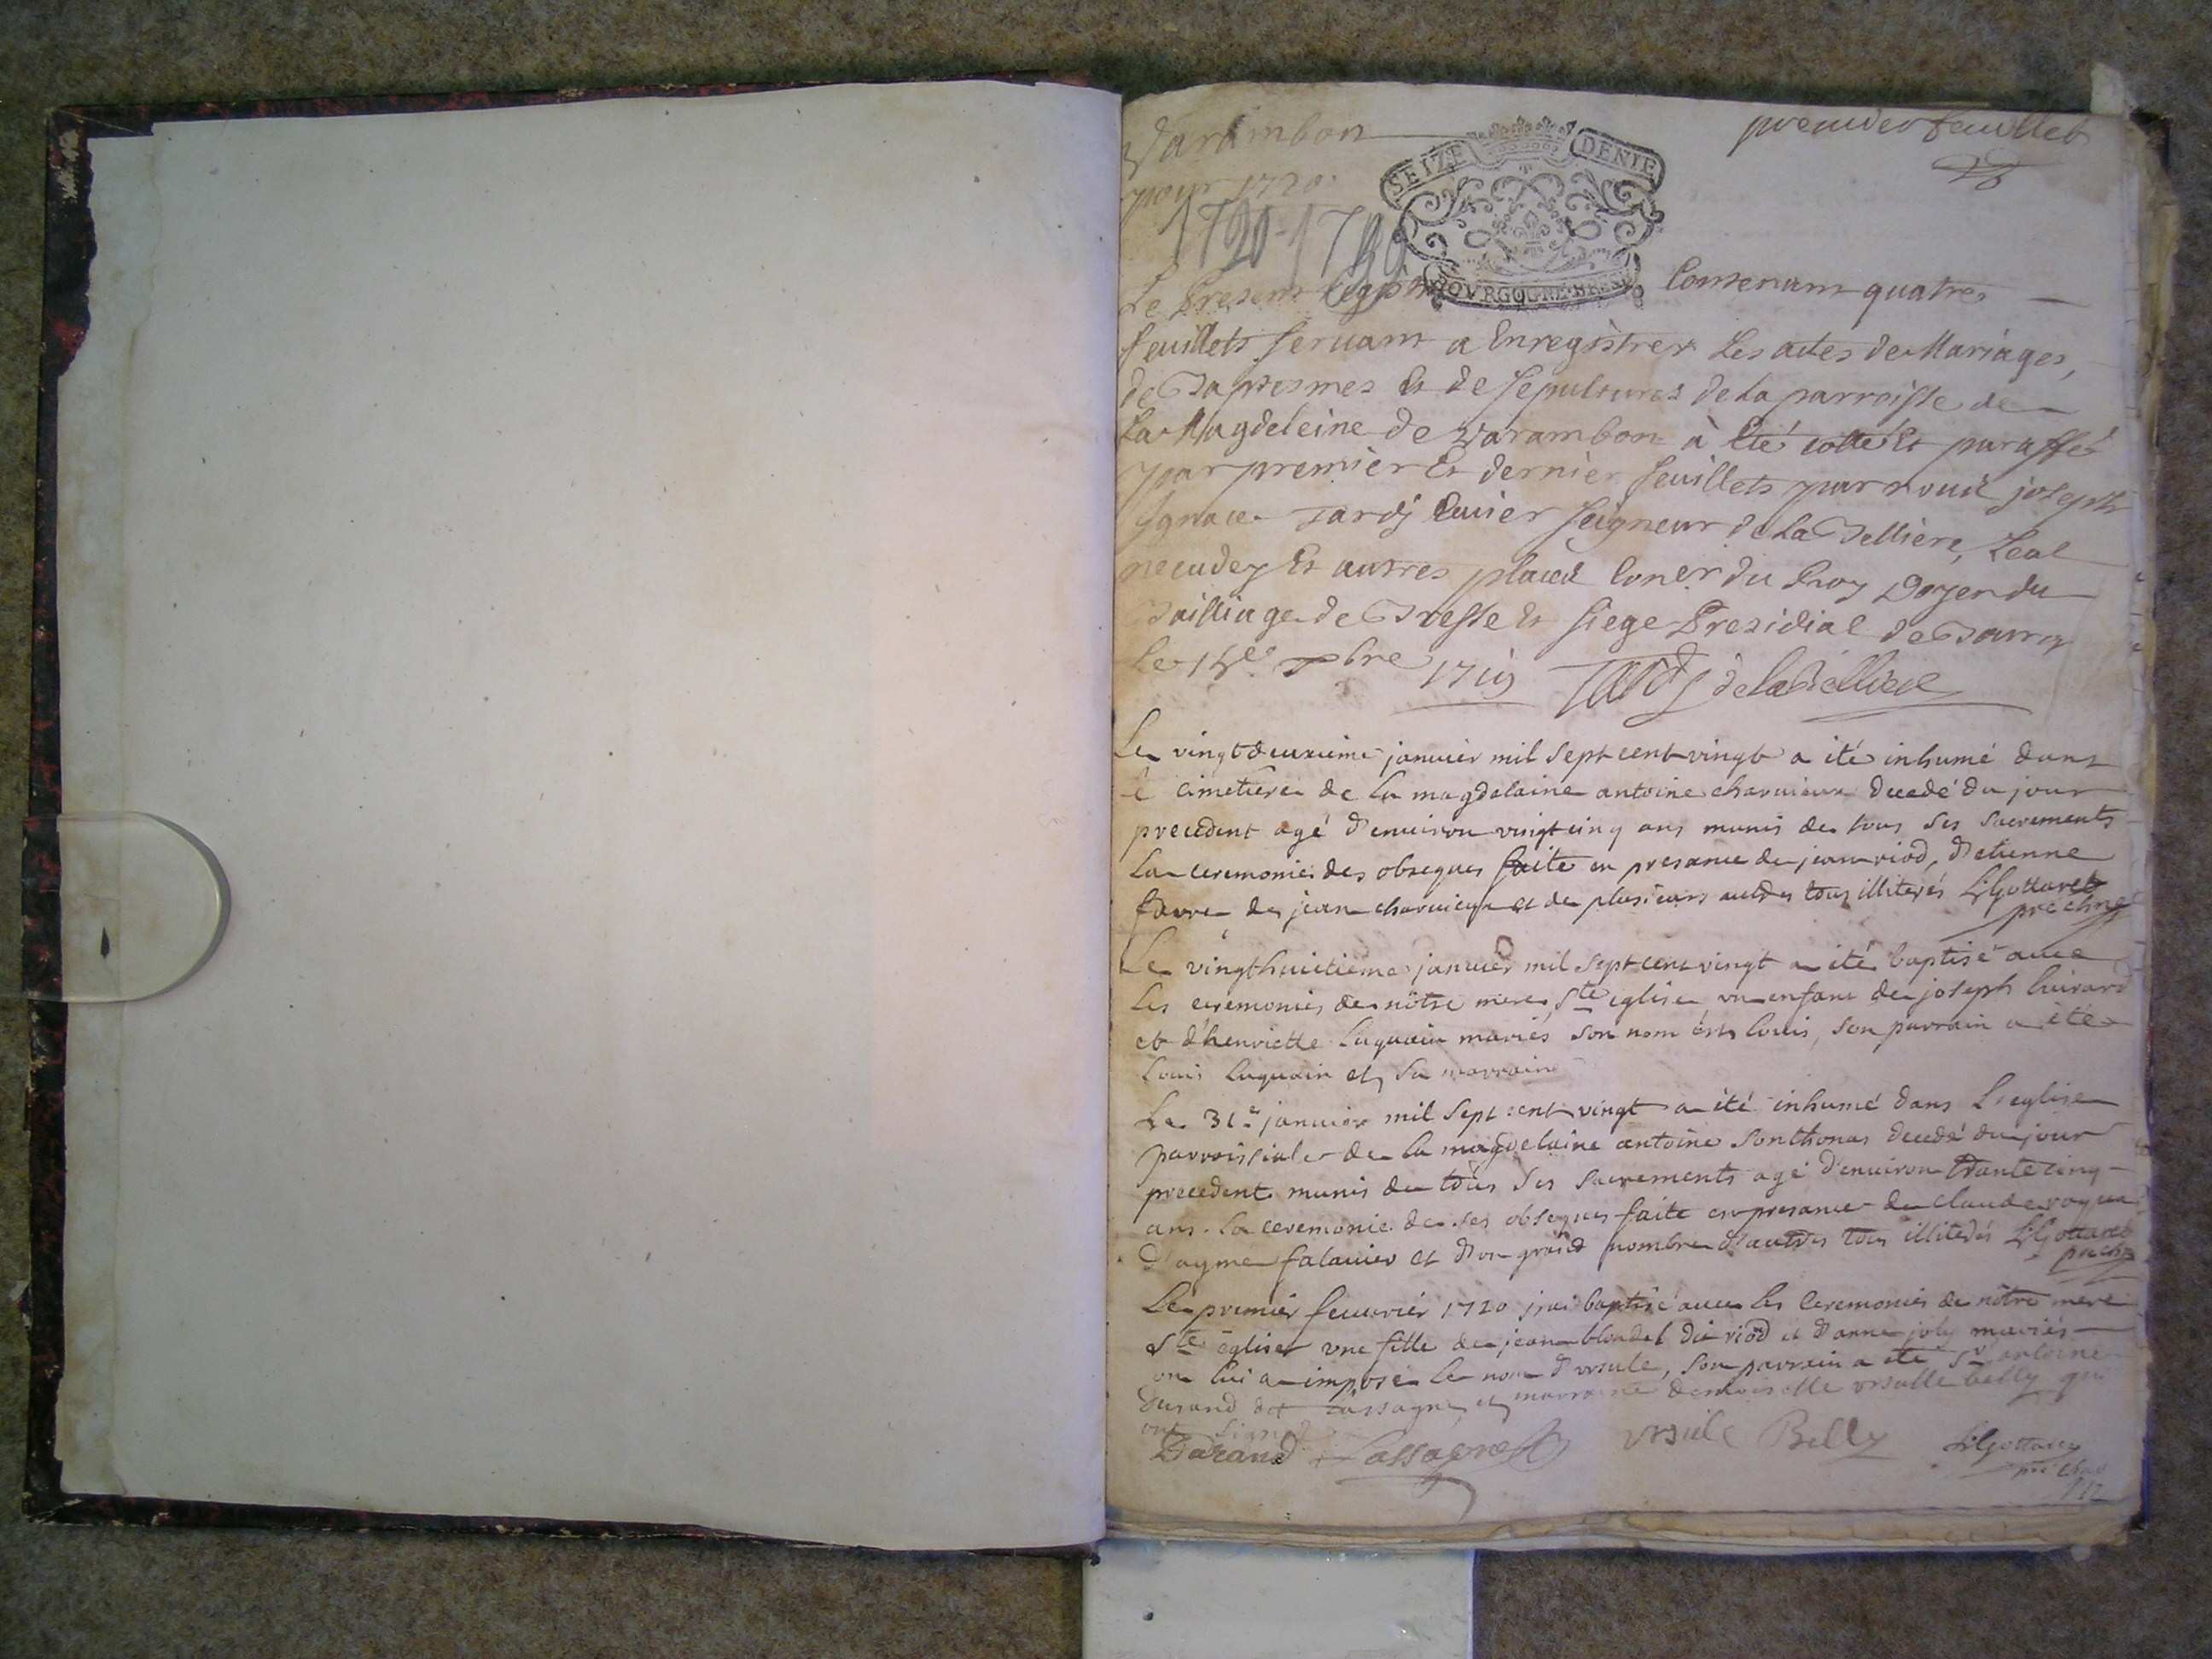 Varambon
premier feuillet
pour 1720.
SEIZE DENIE
1720-17
BOURGOGNE BRES
Le present Contenant quatre
feuillets servant a Enregistrer Les actes de Mariages,
de Baptesmes Et de sepultures de La parroisse de
La Magdeleine de Varambon à Eté cotté Et paraffé
par premier Et dernier feuillets par nous joseph
Ignace Tardy Ecuier seigneur de La Bellière,
Et autres places Coner du Roy Doyen du
Bailliage de Bresse Et siege Presidial de Bourg
Le bre 1719 Tardy de la Belliere
Le vingtdeuxieme janvier mil sept cent vingt a ité inhumé dans
le cimetiere de la magdelaine antoine charuieux decedé du jour
precedent agé d'enuiron vingtcinq ans munis de tous ses sacrements
La ceremonie des obseques faite en presance de jean riod, d'etienne
favre de jean charuieux et de plusieurs autres tous illiterés LGottaret
Le vingthuitieme janvier mil sept cent vingt a ité baptisé auec
les ceremonies de nôtre mere Ste eglise un enfant de joseph
et d'henriette Luquain mariés son nom est louis, son parrain a été
Louis Luquain et sa marraine
Le 31e janvier mil sept cent vingt a été inhumé dans L'eglise
parroissiale de la magdelaine antoine Sonthonas decedé du jour
precedent munis de tous ses sacrements agé d'enuiron trante cinq
ans. la ceremonie de ses obseques faite en presance de claude
d'ayme falauier et d'un grand nombre d'autres tous illiterés LGottaret
Le premier feuurier 1720 j'ai baptisé auec les ceremonies de nôtre mere
Ste eglise une fille de jean blondel dit riod et d'anne joly mariés
on lui a imposé le nom d'ursule, son parrain a eté Sr antoine
Durand dit Lassagne et marraine demoiselle ursulle belly qui
ont signé
Durand Lassagne ursule Belly LGottaret